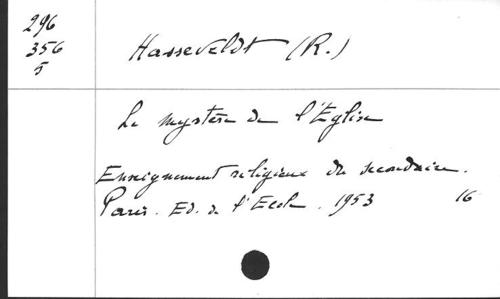 296
356
5
Hasseveldt (R.)
Le mystère de l'Eglise
Enseignement religieux du secondaire.
Paris. Ed. de l'Ecole. 1953 16